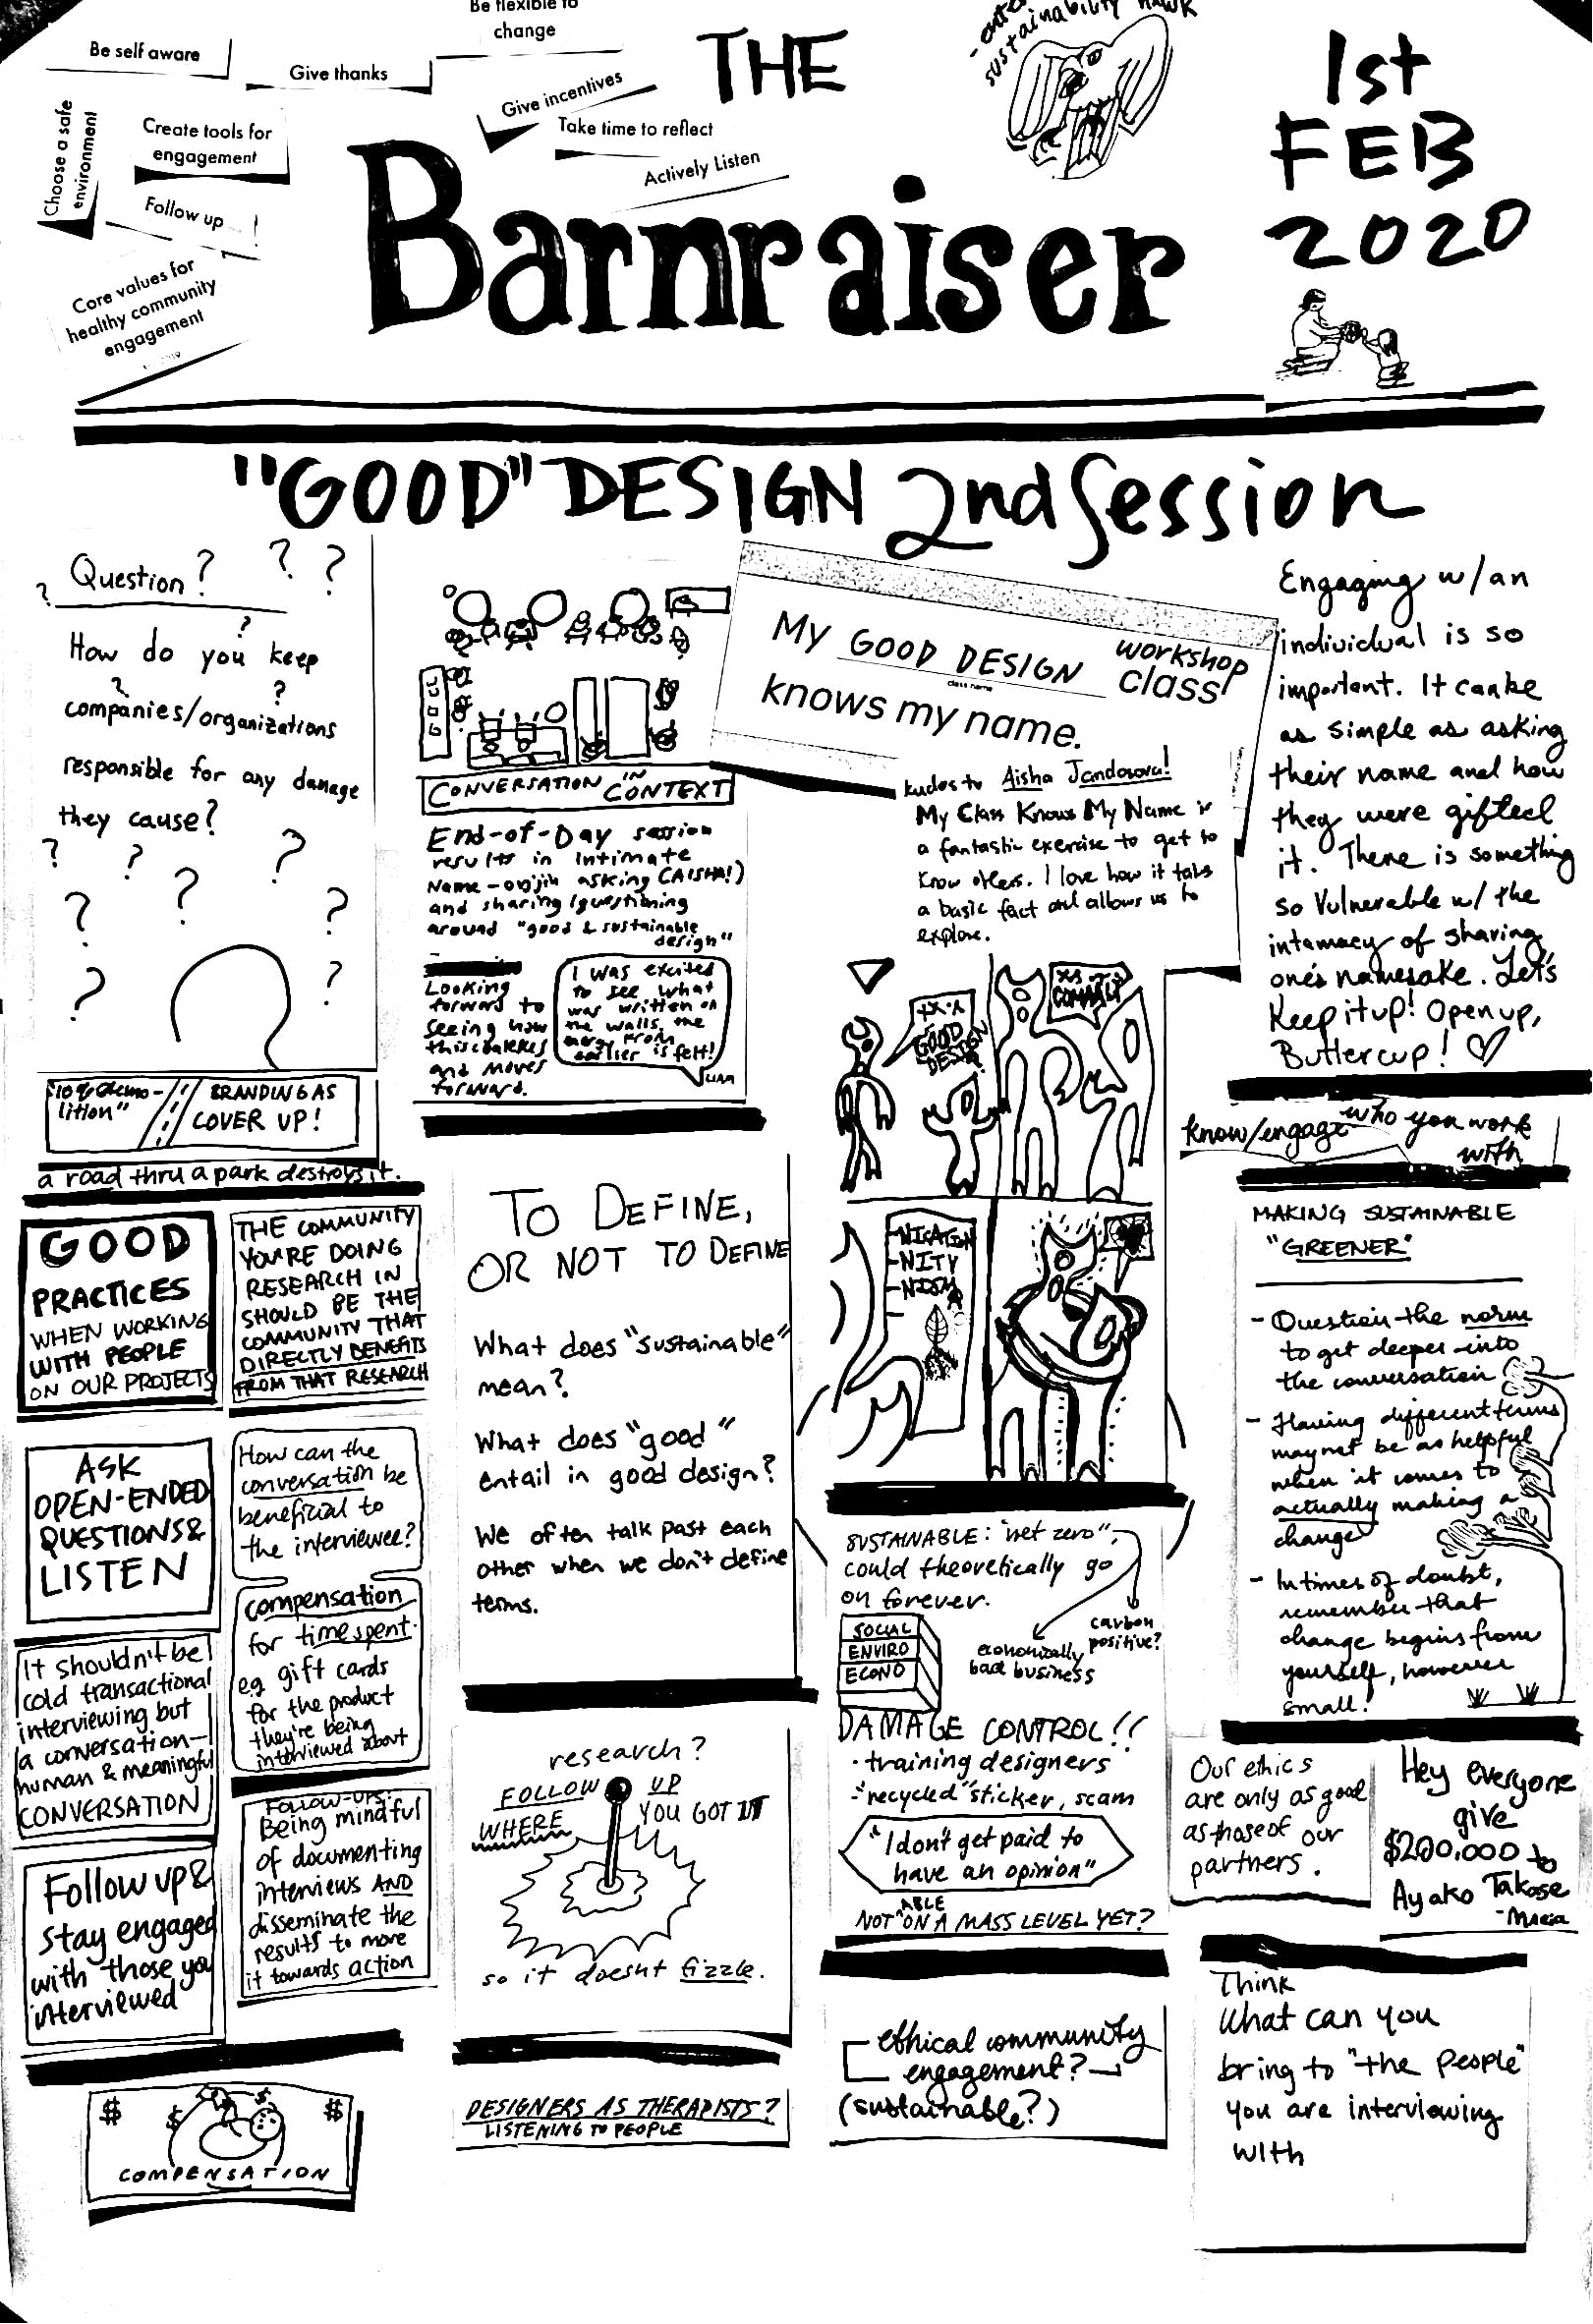 Be self aware
Give thanks
Be flexible to
change
Give incentives
Take time to reflect
Actively Listen
Choose a safe
environment
Create tools for
engagement
Follow up
Core values for
healthy community
engagement
THE
Barnraiser
sustainability hawk
1st
FEB
2020
"GOOD" DESIGN 2nd Session
Question?
How do you keep
companies/organizations
responsible for any damage
they cause?
BRANDING AS
COVER UP!
a road thru a park destroys it.
GOOD
PRACTICES
WHEN WORKING
WITH PEOPLE
ON OUR PROJECTS
THE COMMUNITY
YOU'RE DOING
RESEARCH IN
SHOULD BE THE
COMMUNITY THAT
DIRECTLY BENEFITS
FROM THAT RESEARCH
ASK
OPEN-ENDED
QUESTIONS &
LISTEN
How can the
conversation be
beneficial to
the interviewee?
compensation
for time spent.
eg gift cards
for the product
they're being
interviewed about
It shouldn't be
cold transactional
interviewing but
a conversation—
human & meaningful
CONVERSATION
FOLLOW-UPS:
Being mindful
of documenting
interviews AND
disseminate the
results to more
it towards action
Follow up &
stay engaged
with those you
interviewed
$ $ $ $
COMPENSATION
CONVERSATION IN CONTEXT
End-of-Day session
results in Intimate
Name-origin asking (AISHA!)
and sharing/questioning
around "good & sustainable
design"
Looking
forward to
seeing how
this coalesces
and moves
forward.
I was excited
to see what
was written on
the walls, the
energy from
earlier is felt!
LIAM
TO DEFINE,
OR NOT TO DEFINE
What does "sustainable"
mean?
What does "good"
entail in good design?
We often talk past each
other when we don't define
terms.
research?
FOLLOW UP
WHERE YOU GOT IT
so it doesn't fizzle.
DESIGNERS AS THERAPISTS?
LISTENING TO PEOPLE
My GOOD DESIGN workshop class
class name
knows my name.
kudos to Aisha Jandosova!
My Class Knows My Name is
a fantastic exercise to get to
know others. I love how it takes
a basic fact and allows us to
explore.
GOOD
DESIGN
-NICATION
-NITY
-NISM
SUSTAINABLE: "net zero",
could theoretically go
on forever.
SOCIAL
ENVIRO
ECONO
economically
bad business
carbon
positive?
DAMAGE CONTROL!!
· training designers
- "recycled" sticker, scam
"I don't get paid to
have an opinion"
NOT ABLE ON A MASS LEVEL YET?
ethical community
engagement?
(sustainable?)
Engaging w/an
individual is so
important. It can be
as simple as asking
their name and how
they were gifted
it. There is something
so vulnerable w/ the
intamacy of sharing
one's namesake. Let's
Keep it up! Open up,
Buttercup! ♡
know/engage who you work
with
MAKING SUSTAINABLE
"GREENER"
- Question the norm
to get deeper into
the conversation
- Having different terms
may not be as helpful
when it comes to
actually making a
change
- In times of doubt,
remember that
change begins from
yourself, however
small!
Our ethics
are only as good
as those of our
partners.
Hey everyone
give
$200,000 to
Ayako Takase
-Maria
Think
What can you
bring to "the people"
you are interviewing
with